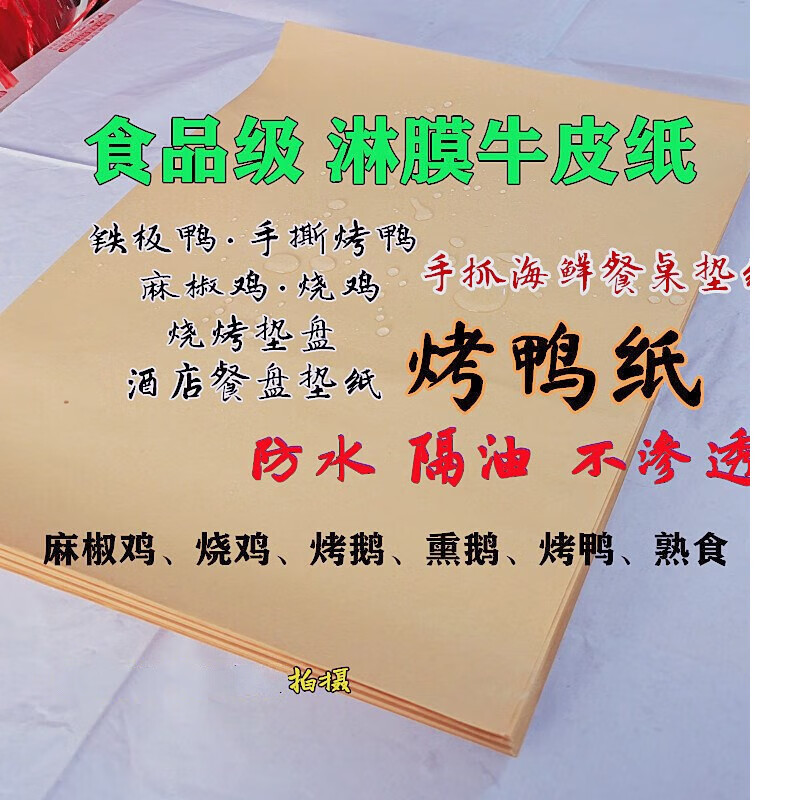 食品级 淋膜牛皮纸
铁板鸭·手撕烤鸭
麻椒鸡·烧鸡
手抓海鲜餐桌垫纸
烧烤垫盘
烤鸭纸
酒店餐盘垫纸
防水 隔油 不渗透
麻椒鸡、烧鸡、烤鹅、熏鹅、烤鸭、熟食
拍摄